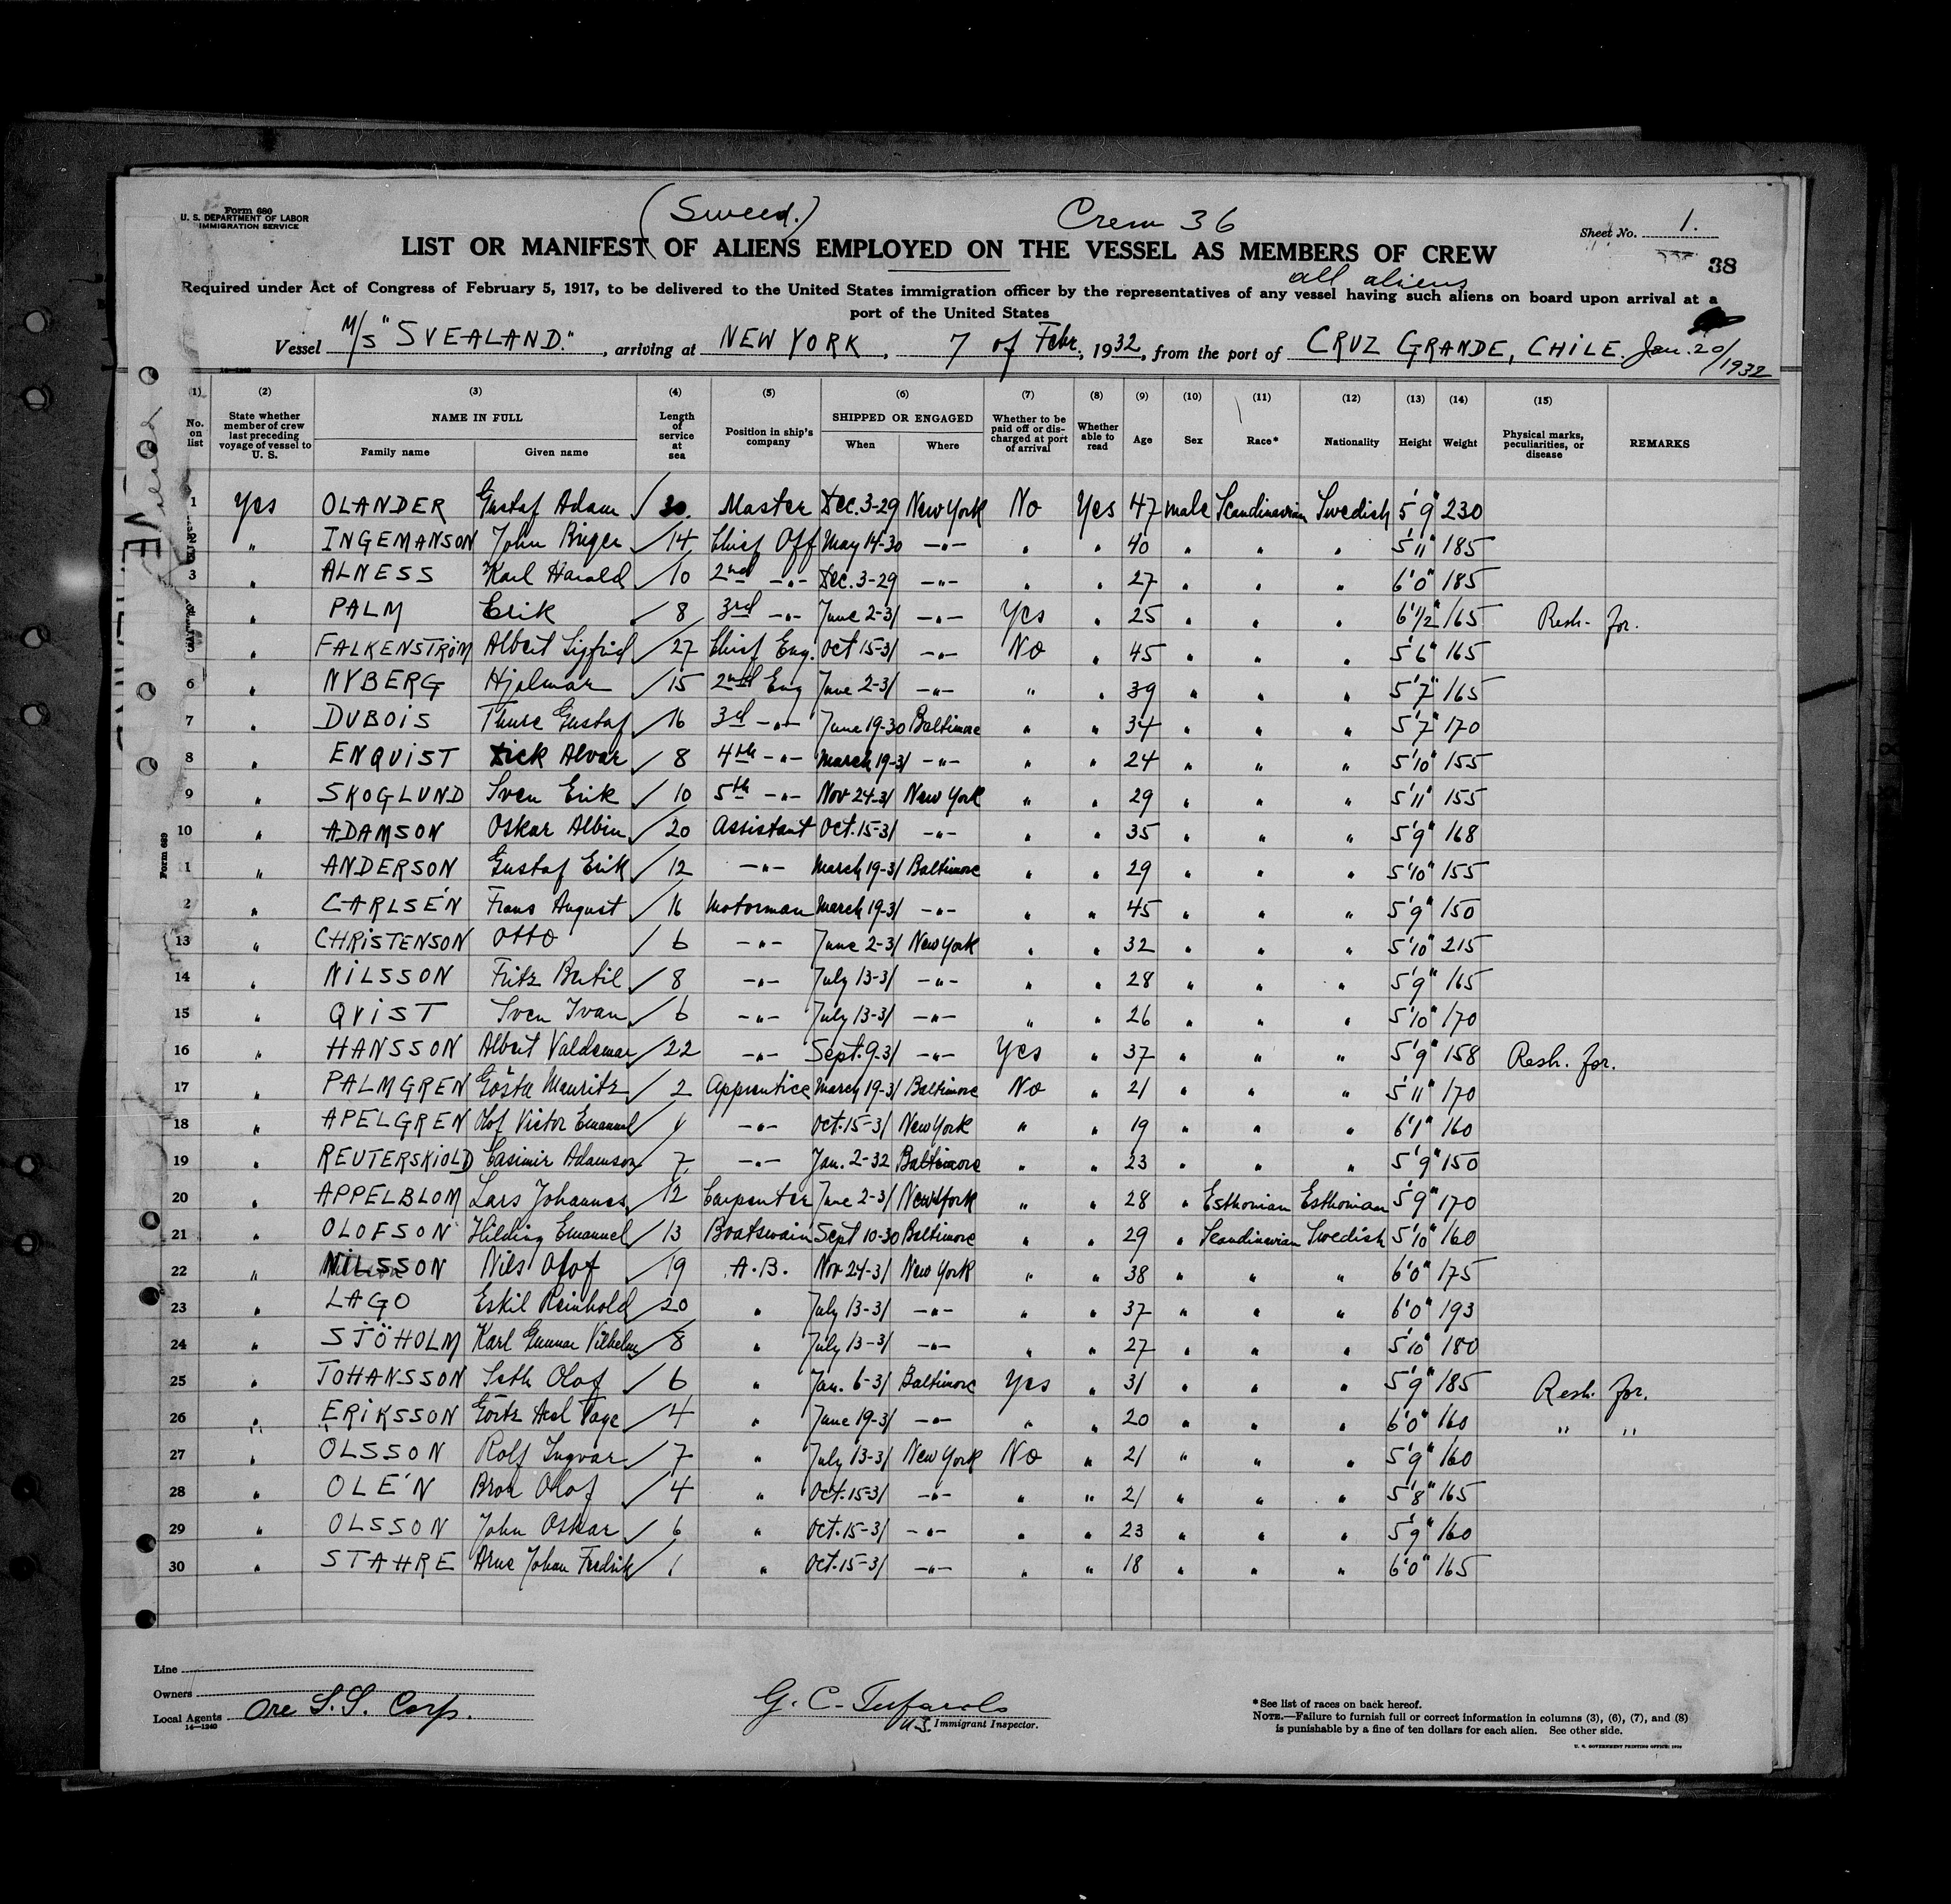 Form 680
U. S. DEPARTMENT OF LABOR
IMMIGRATION SERVICE
(Sweed.)
Crew 36
Sheet No. 1.
38
LIST OR MANIFEST OF ALIENS EMPLOYED ON THE VESSEL AS MEMBERS OF CREW
all aliens
Required under Act of Congress of February 5, 1917, to be delivered to the United States immigration officer by the representatives of any vessel having such aliens on board upon arrival at a
port of the United States
Vessel M/S "SVEALAND.", arriving at NEW YORK, 7 of Febr., 1932, from the port of CRUZ GRANDE, CHILE. Jan. 20/1932
14—1240
(1) (2) (3) (4) (5) (6) (7) (8) (9) (10) (11) (12) (13) (14) (15)
No. on list | State whether member of crew last preceding voyage of vessel to U. S. | NAME IN FULL | Length of service at sea | Position in ship's company | SHIPPED OR ENGAGED | Whether to be paid off or discharged at port of arrival | Whether able to read | Age | Sex | Race* | Nationality | Height | Weight | Physical marks, peculiarities, or disease | REMARKS
Family name | Given name | When | Where
1 Yes OLANDER Gustaf Adam ✓ 30 Master Dec. 3-29 New York No Yes 47 male Scandinavian Swedish 5'9" 230
2 " INGEMANSON John Birger ✓ 14 Chief Off May 14-30 -"- " " 40 " " " 5'11" 185
3 " ALNESS Karl Harald ✓ 10 2nd -"- Dec. 3-29 -"- " " 27 " " " 6'0" 185
" PALM Erik ✓ 8 3rd -"- June 2-31 -"- Yes " 25 " " " 6'1/2" 165 Resh. for.
5 " FALKENSTRÖM Albert Sigfrid ✓ 27 Chief Eng. Oct 15-31 -"- No " 45 " " " 5'6" 165
6 " NYBERG Hjalmar ✓ 15 2nd Eng June 2-31 -"- " " 39 " " " 5'7" 165
7 " DUBOIS Thure Gustaf ✓ 16 3rd -"- June 19-30 Baltimore " " 34 " " " 5'7" 170
8 " ENQVIST Erick Alvar ✓ 8 4th -"- March 19-31 -"- " " 24 " " " 5'10" 155
9 " SKOGLUND Sven Erik ✓ 10 5th -"- Nov 24-31 New York " " 29 " " " 5'11" 155
10 " ADAMSON Oskar Albin ✓ 20 Assistant Oct. 15-31 -"- " " 35 " " " 5'9" 168
1 " ANDERSON Gustaf Erik ✓ 12 -"- March 19-31 Baltimore " " 29 " " " 5'10" 155
2 " CARLSÉN Frans August ✓ 16 Motorman March 19-31 -"- " " 45 " " " 5'9" 150
13 " CHRISTENSON Otto ✓ 6 -"- June 2-31 New York " " 32 " " " 5'10" 215
14 " NILSSON Fritz Bertil ✓ 8 -"- July 13-31 -"- " " 28 " " " 5'9" 165
15 " QVIST Sven Ivan ✓ 6 -"- July 13-31 -"- " " 26 " " " 5'10" 170
16 " HANSSON Albert Valdemar ✓ 22 -"- Sept. 9-31 -"- Yes " 37 " " " 5'9" 158 Resh. for.
17 " PALMGREN Gösta Mauritz ✓ 2 Apprentice March 19-31 Baltimore No " 21 " " " 5'11" 170
18 " APELGREN Olof Victor Emanuel ✓ -"- Oct. 15-31 New York " " 19 " " " 6'1" 160
19 " REUTERSKIOLD Casimir Adamson ✓ 7 -"- Jan. 2-32 Baltimore " " 23 " " " 5'9" 150
20 " APPELBLOM Lars Johannes ✓ 12 Carpenter June 2-31 New York " " 28 " Esthonian Esthonian 5'9" 170
21 " OLOFSON Hilding Emanuel ✓ 13 Boatswain Sept 10-30 Baltimore " " 29 " Scandinavian Swedish 5'10" 160
22 " NILSSON Nils Olof ✓ 19 A.B. Nov 24-31 New York " " 38 " " " 6'0" 175
23 " LAGO Eskil Reinhold ✓ 20 " July 13-31 -"- " " 37 " " " 6'0" 193
24 " SJÖHOLM Karl Gunnar Vilhelm ✓ 8 " July 13-31 -"- " " 27 " " " 5'10" 180
25 " JOHANSSON Seth Olof ✓ 6 " Jan. 6-31 Baltimore Yes " 31 " " " 5'9" 185 Resh. for.
26 " ERIKSSON Görtz Axel Tage ✓ 4 " June 19-31 -"- " " 20 " " " 6'0" 160 " "
27 " OLSSON Rolf Ingvar ✓ 7 " July 13-31 New York No " 21 " " " 5'9" 160
28 " OLÉN Bror Olof ✓ 4 " Oct. 15-31 -"- " " 21 " " " 5'8" 165
29 " OLSSON John Oskar ✓ 6 " Oct. 15-31 -"- " " 23 " " " 5'9" 160
30 " STAHRE Arne Johan Fredrik ✓ 1 " Oct. 15-31 -"- " " 18 " " " 6'0" 165
Form 680
Line
Owners
Local Agents Ore S.S. Corp.
14—1240
G. C. Tufarolo
U.S. Immigrant Inspector.
*See list of races on back hereof.
NOTE.—Failure to furnish full or correct information in columns (3), (6), (7), and (8)
is punishable by a fine of ten dollars for each alien. See other side.
U. S. GOVERNMENT PRINTING OFFICE